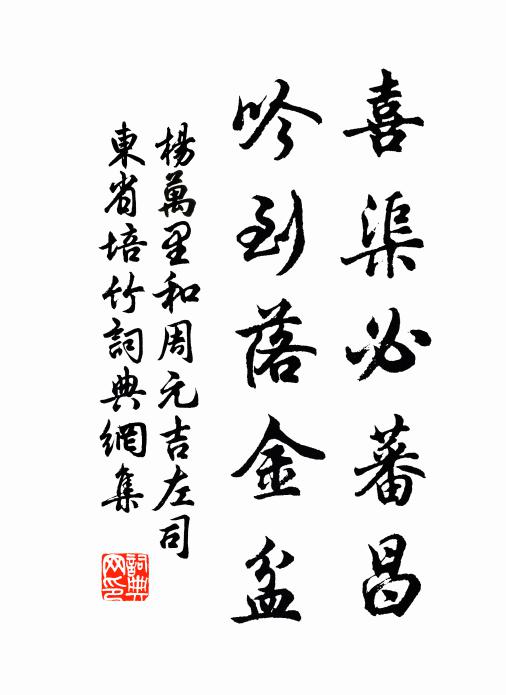 喜渠必蕃昌
吟到落金盆
楊萬里和周元吉左司
東省培竹詞典網集
詞典網印